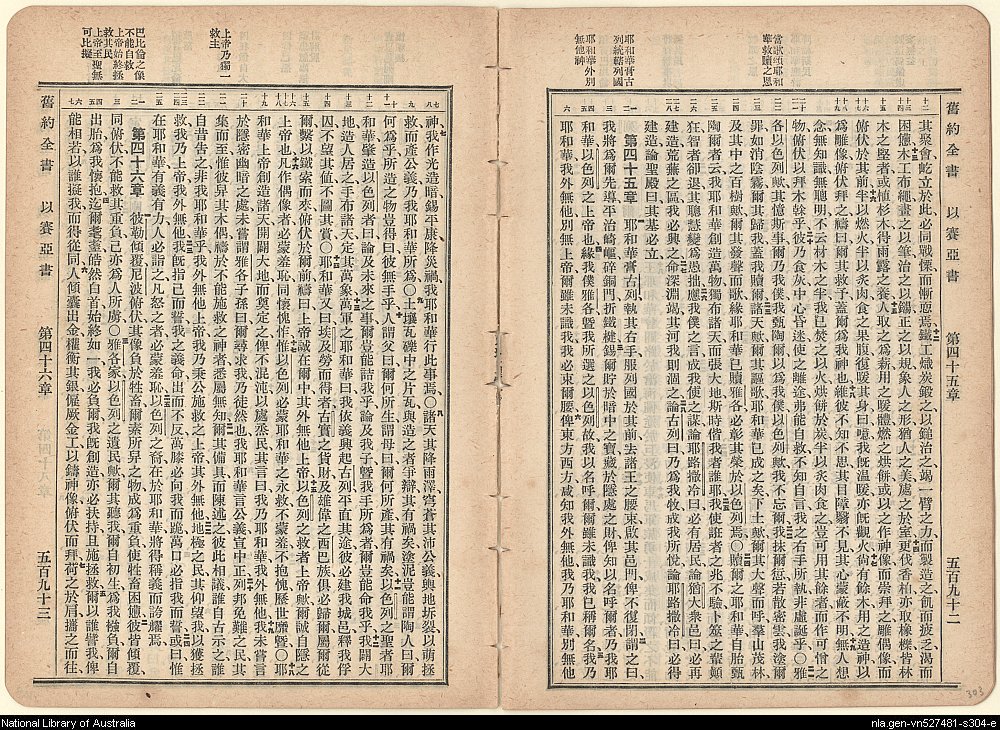 當歌頌耶和
華救贖之恩
耶和華膏古
列統轄列國
耶和華外別
無他神
舊約全書 以賽亞書 第四十五章 五百九十二
其聚會屹立於此必同戰慄而慚恧焉鐵工熾炭鍛之以鎚治之竭一臂之力而製造之飢而疲乏渴而
困憊木工布繩畫之以筆治之以鐋正之以規象人之形猶人之美處之於室更伐香柏亦取橡樺皆林
木之堅者或植杉木得雨露之養人取之為薪用之暖體燃之烘餅或以之作神像而崇拜之雕偶像而
俯伏於其前半以燃火半以炙肉食之果腹復暖其身曰噫我旣溫暖亦旣觀火尙有餘木用之造神以
為雕像俯伏拜之禱曰爾其救予蓋爾為我神也維彼不知不思其目障翳不見其心蒙蔽不明無人想
念無知識無聰明不云材木之半我已焚之以火烘餅於炭半以炙肉食之豈可用其餘者而作可憎之
物俯伏以拜木榦乎彼乃食灰中心昏迷使之離途弗能自救不知自言我之右手所執非虛誕乎○雅
各以色列歟其憶斯事爾乃我僕我甄陶爾以為我僕以色列歟我不忘爾我抹爾愆若散密雲我塗爾
罪如消陰霧爾其歸我蓋我贖爾諸天歟爾其謳歌耶和華已成之矣下土歟爾其大聲而呼羣山茂林
及其中之百樹歟爾其發聲而歌緣耶和華已贖雅各必彰其榮於以色列焉○贖爾之耶和華自胎甄
陶爾者云我耶和華創造萬物獨布諸天而張大地斯時偕我者誰耶我使誑者之兆不驗卜筮之輩顛
狂智者卻退其聰慧變為愚拙應我僕之言成我使之謀論耶路撒冷曰必有居民論猶大衆邑曰必再
建造荒蕪之區我必興之命深淵曰涸我則涸之論古列曰乃為我牧成我所悅論耶路撒冷曰必得
建造論聖殿曰其基必立
第四十五章 耶和華膏古列執其右手服列國於其前去諸王之腰束啟其邑門俾不復閉謂之曰
我將為爾先導平治崎嶇碎銅門折鐵楗錫爾貯於暗中之寶藏於隱處之財俾知以名呼爾者乃我耶
和華以色列之上帝也緣我僕雅各暨我所選之以色列故我以名呼爾爾雖未識我我已稱爾名我乃
耶和華我外無他別無上帝爾雖未識我我必束爾腰俾東方西方咸知我外無他我乃耶和華別無他
上帝乃獨一
救主
巴比倫之像
不能自救
上帝始終拯
救其民
上帝至聖無
可比擬
神我作光造暗錫平康降災禍我耶和華行此事焉○諸天其降雨澤穹蒼其沛公義輿地坼裂以萌拯
救而產公義我乃耶和華所為○土壤瓦礫中之片瓦與造之者爭辯其有禍矣摶泥豈能謂陶人曰爾
何為乎所造之物豈得曰彼無手乎人謂父曰爾何所生謂母曰爾何所產其有禍矣以色列之聖者耶
和華肇造以色列者曰論及未來之事爾豈能詰我乎論及我子暨我手所為者爾豈能命我乎我闢大
地造人居之手布諸天定其萬象萬軍之耶和華曰我依義興起古列平直其途彼必建我城邑釋我俘
囚不望其値不圖其賞○耶和華又曰埃及勞而得者古實之貨財及雄偉之西巴族俱必歸爾屬爾從
爾繫以鐵索而來俯伏於爾前禱曰上帝誠在爾中其外無他上帝以色列之救者上帝歟爾誠自隱之
上帝也凡作偶像者必蒙羞恥同懷愧怍惟以色列必蒙耶和華之永救不蒙羞不抱愧歷世靡曁○耶
和華上帝創造諸天開闢大地而奠定之俾不混沌以處烝民其言曰我乃耶和華我外無他我未嘗言
於隱密幽暗之處未嘗謂雅各子孫曰爾尋求我乃徒然也我耶和華言公義宣中正列邦免難之民其
集而至惟彼舁其木偶禱於不能施救之神者悉屬無知爾其備具而陳述之彼此相議誰自古示之誰
自昔告之非我耶和華乎我外無他上帝我乃秉公施救之上帝其外無他地極之民其仰望我以獲拯
救我乃上帝我外無他我旣指己而誓我之義命出而不反萬膝必向我而跪萬口必指我而誓或曰惟
在耶和華有義有力人必詣之凡怒之者必蒙羞恥以色列之裔在於耶和華將得稱義而誇耀焉
第四十六章 彼勒傾覆尼波俯伏其像負於牲畜爾素所舁之物成為重負使牲畜困憊彼皆傾覆
同俯伏不能救其重負己亦為人所虜○雅各家以色列之遺民歟爾其聽我爾自初生為我襁負爾自
出胎為我懷抱迄爾耄耋皓然白首始終如一我必負爾我旣創造亦必扶持且施拯救爾以誰譬我俾
能相若以誰擬我而得從同人傾囊出金權衡其銀僱厥金工以鑄神像俯伏而拜荷之於肩攜之而往
舊約全書 以賽亞書 第四十六章 五百九十三
303
National Library of Australia
nla.gen-vn527481-s304-e